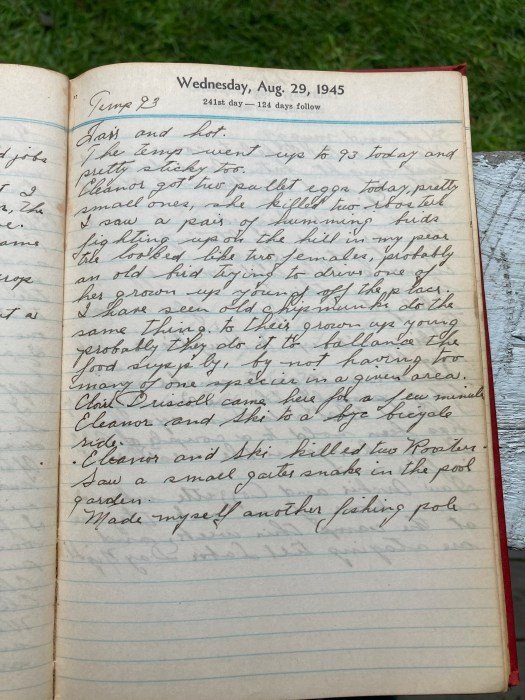 Wednesday, Aug. 29, 1945
241st day — 124 days follow
" Temp 93
Fair and hot.
The temp went up to 93 today and
pretty sticky too.
Eleanor got two pullet eggs today, pretty
small ones, she killed two roosters
I saw a pair of humming birds
fighting up on the hill in my pear
tree looked like two females, probably
an old bird trying to drive one of
her grown up young off the place.
I have seen old chipmunks do the
same thing to their grown up young
probably they do it to ballance the
food supply, by not having too
many of one species in a given area.
Driscoll came here for a few minuets
Eleanor and Ski to a bye bicycle
ride.
. Eleanor and Ski killed two Roosters.
Saw a small garter snake in the pool
garden.
Made myself another fishing pole
d jobs
t I
s, the
e.
ame
rop
t a